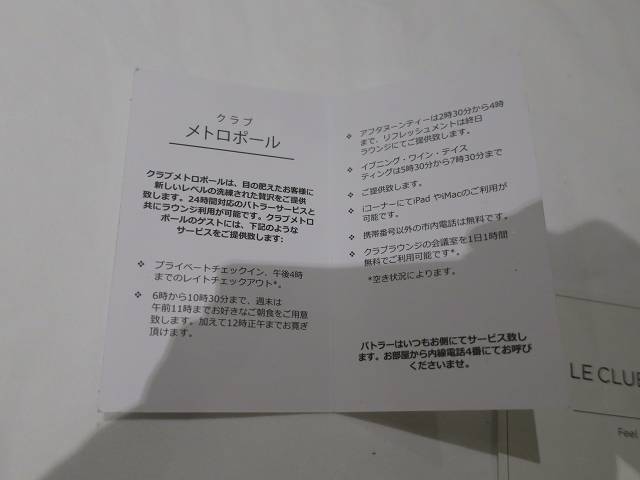 クラブ
メトロポール
クラブメトロポールは、目の肥えたお客様に
新しいレベルの洗練された贅沢をご提供
致します。24時間対応のバトラーサービスと
共にラウンジ利用が可能です。クラブメトロ
ポールのゲストには、下記のような
サービスをご提供致します:
❖ プライベートチェックイン、午後4時
までのレイトチェックアウト*。
❖ 6時から10時30分まで、週末は
午前11時までお好きなご朝食をご用意
致します。加えて12時正午までお寛ぎ
頂けます。
❖ アフタヌーンティーは2時30分から4時
まで、リフレッシュメントは終日
ラウンジにてご提供致します。
❖ イブニング・ワイン・テイス
ティングは5時30分から7時30分まで
❖ ご提供致します。
❖ iコーナーにてiPad やiMacのご利用が
可能です。
❖ 携帯番号以外の市内電話は無料です。
❖ クラブラウンジの会議室を1日1時間
無料でご利用可能です*。
*空き状況によります。
バトラーはいつもお側にてサービス致し
ます。お部屋から内線電話4番にてお呼び
くださいませ。
LE CLUB
Feel